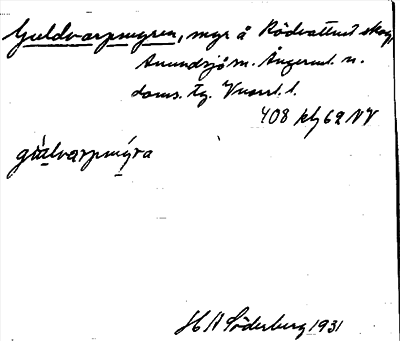 Guldvarpmyren, myr å Rödvattnet skog,
Anundsjö sn. Ångerml. n.
doms. Tg. Vnorrl. l.
408 kbg 62 NV
gúlvarpmýra
H A Söderberg 1931